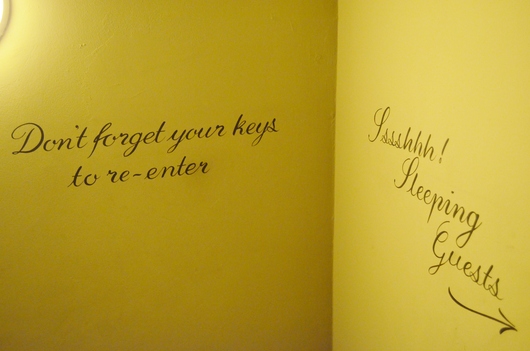 Don't forget your keys
to re-enter
Sssshhh!
Sleeping
Guests